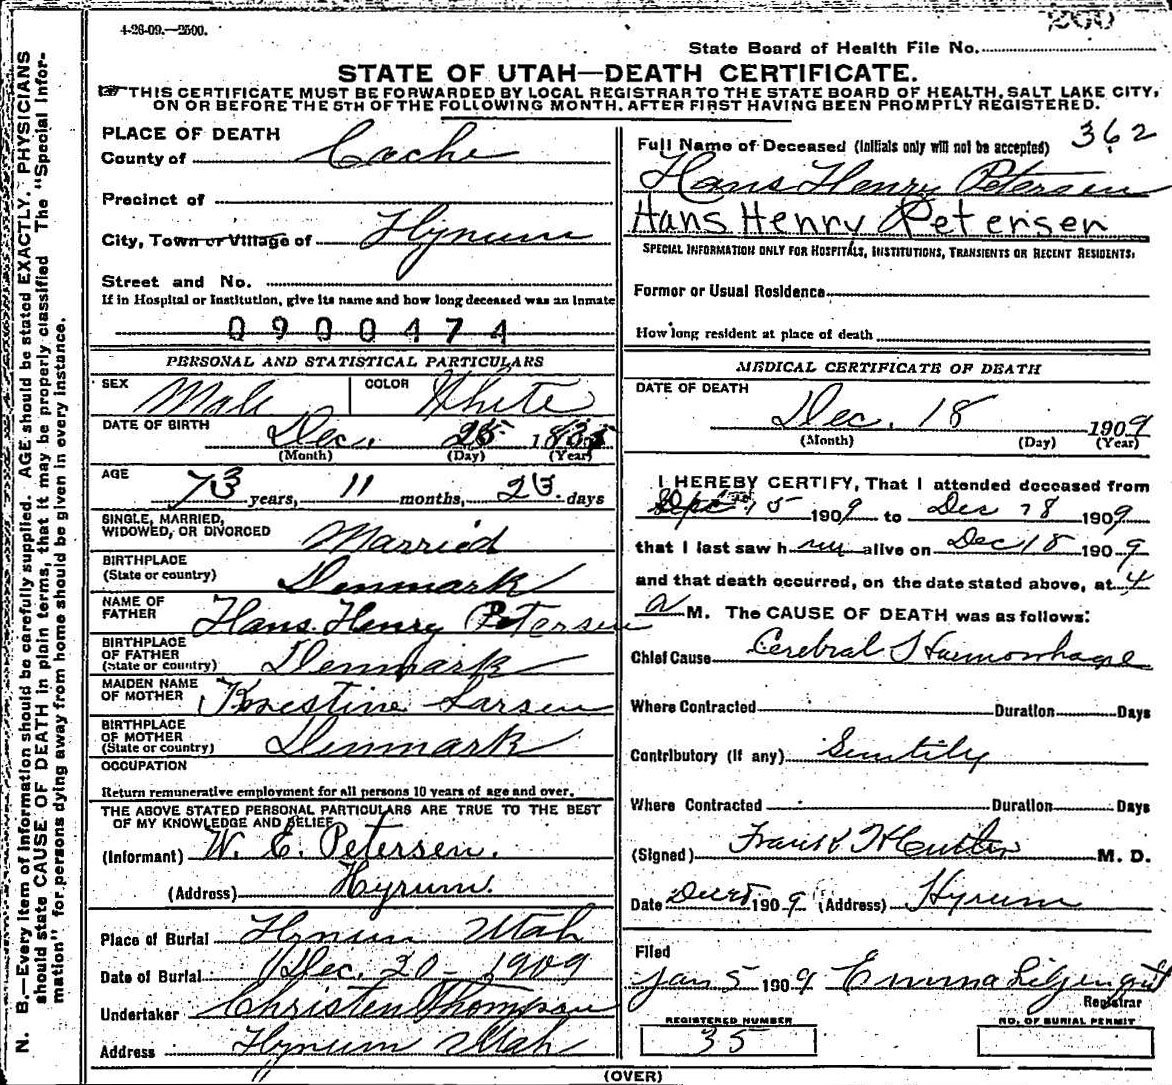 4-26-09.—2500.
260
State Board of Health File No.
STATE OF UTAH—DEATH CERTIFICATE.
THIS CERTIFICATE MUST BE FORWARDED BY LOCAL REGISTRAR TO THE STATE BOARD OF HEALTH, SALT LAKE CITY,
ON OR BEFORE THE 5TH OF THE FOLLOWING MONTH, AFTER FIRST HAVING BEEN PROMPTLY REGISTERED.
N. B.—Every item of information should be carefully supplied. AGE should be stated EXACTLY. PHYSICIANS
should state CAUSE OF DEATH in plain terms, that it may be properly classified. The "Special Infor-
mation" for persons dying away from home should be given in every instance.
PLACE OF DEATH
County of Cache
Precinct of
City, Town or Village of Hyrum
Street and No.
If in Hospital or Institution, give its name and how long deceased was an inmate
0900474
PERSONAL AND STATISTICAL PARTICULARS
SEX Male COLOR White
DATE OF BIRTH Dec. 25 1835
(Month) (Day) (Year)
AGE 73 years, 11 months, 23 days
SINGLE, MARRIED,
WIDOWED, OR DIVORCED Married
BIRTHPLACE
(State or country) Denmark
NAME OF
FATHER Hans Henry Petersen
BIRTHPLACE
OF FATHER
(State or country) Denmark
MAIDEN NAME
OF MOTHER Larsen
BIRTHPLACE
OF MOTHER
(State or country) Denmark
OCCUPATION
Return remunerative employment for all persons 10 years of age and over.
THE ABOVE STATED PERSONAL PARTICULARS ARE TRUE TO THE BEST
OF MY KNOWLEDGE AND BELIEF
(Informant) W. E. Petersen.
(Address) Hyrum.
Place of Burial Hyrum Utah
Date of Burial Dec. 20 - 1909
Undertaker Christen Thompson
Address Hyrum Utah
362
Full Name of Deceased (Initials only will not be accepted)
Hans Henry Petersen
Hans Henry Petersen
SPECIAL INFORMATION ONLY FOR HOSPITALS, INSTITUTIONS, TRANSIENTS OR RECENT RESIDENTS:
Former or Usual Residence
How long resident at place of death
MEDICAL CERTIFICATE OF DEATH
DATE OF DEATH
Dec. 18 1909
(Month) (Day) (Year)
I HEREBY CERTIFY, That I attended deceased from
15 1909 to Dec 18 1909
that I last saw him alive on Dec 18 1909
and that death occurred, on the date stated above, at 4
a M. The CAUSE OF DEATH was as follows:
Chief Cause Cerebral Haemorrhage
Where Contracted Duration Days
Contributory (if any) Senility
Where Contracted Duration Days
(Signed) M. D.
Date 1909 (Address) Hyrum
Filed
Jan 5 1909 Emma Liljenquist
Registrar
REGISTERED NUMBER
35
NO. OF BURIAL PERMIT
(OVER)